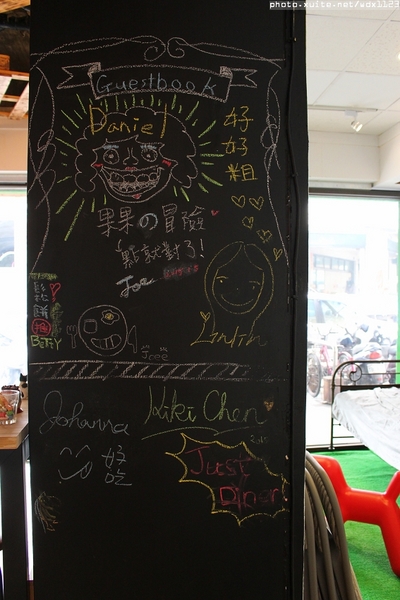 photo.xuite.net/wdx1123
Guestbook
Daniel
好
好
粗
果果の冒險
點就對了!
Joe
鬆
餅
BETTY
Joee
Lintin
Johanna
Kiki Chen
好
吃
Just
Diner!